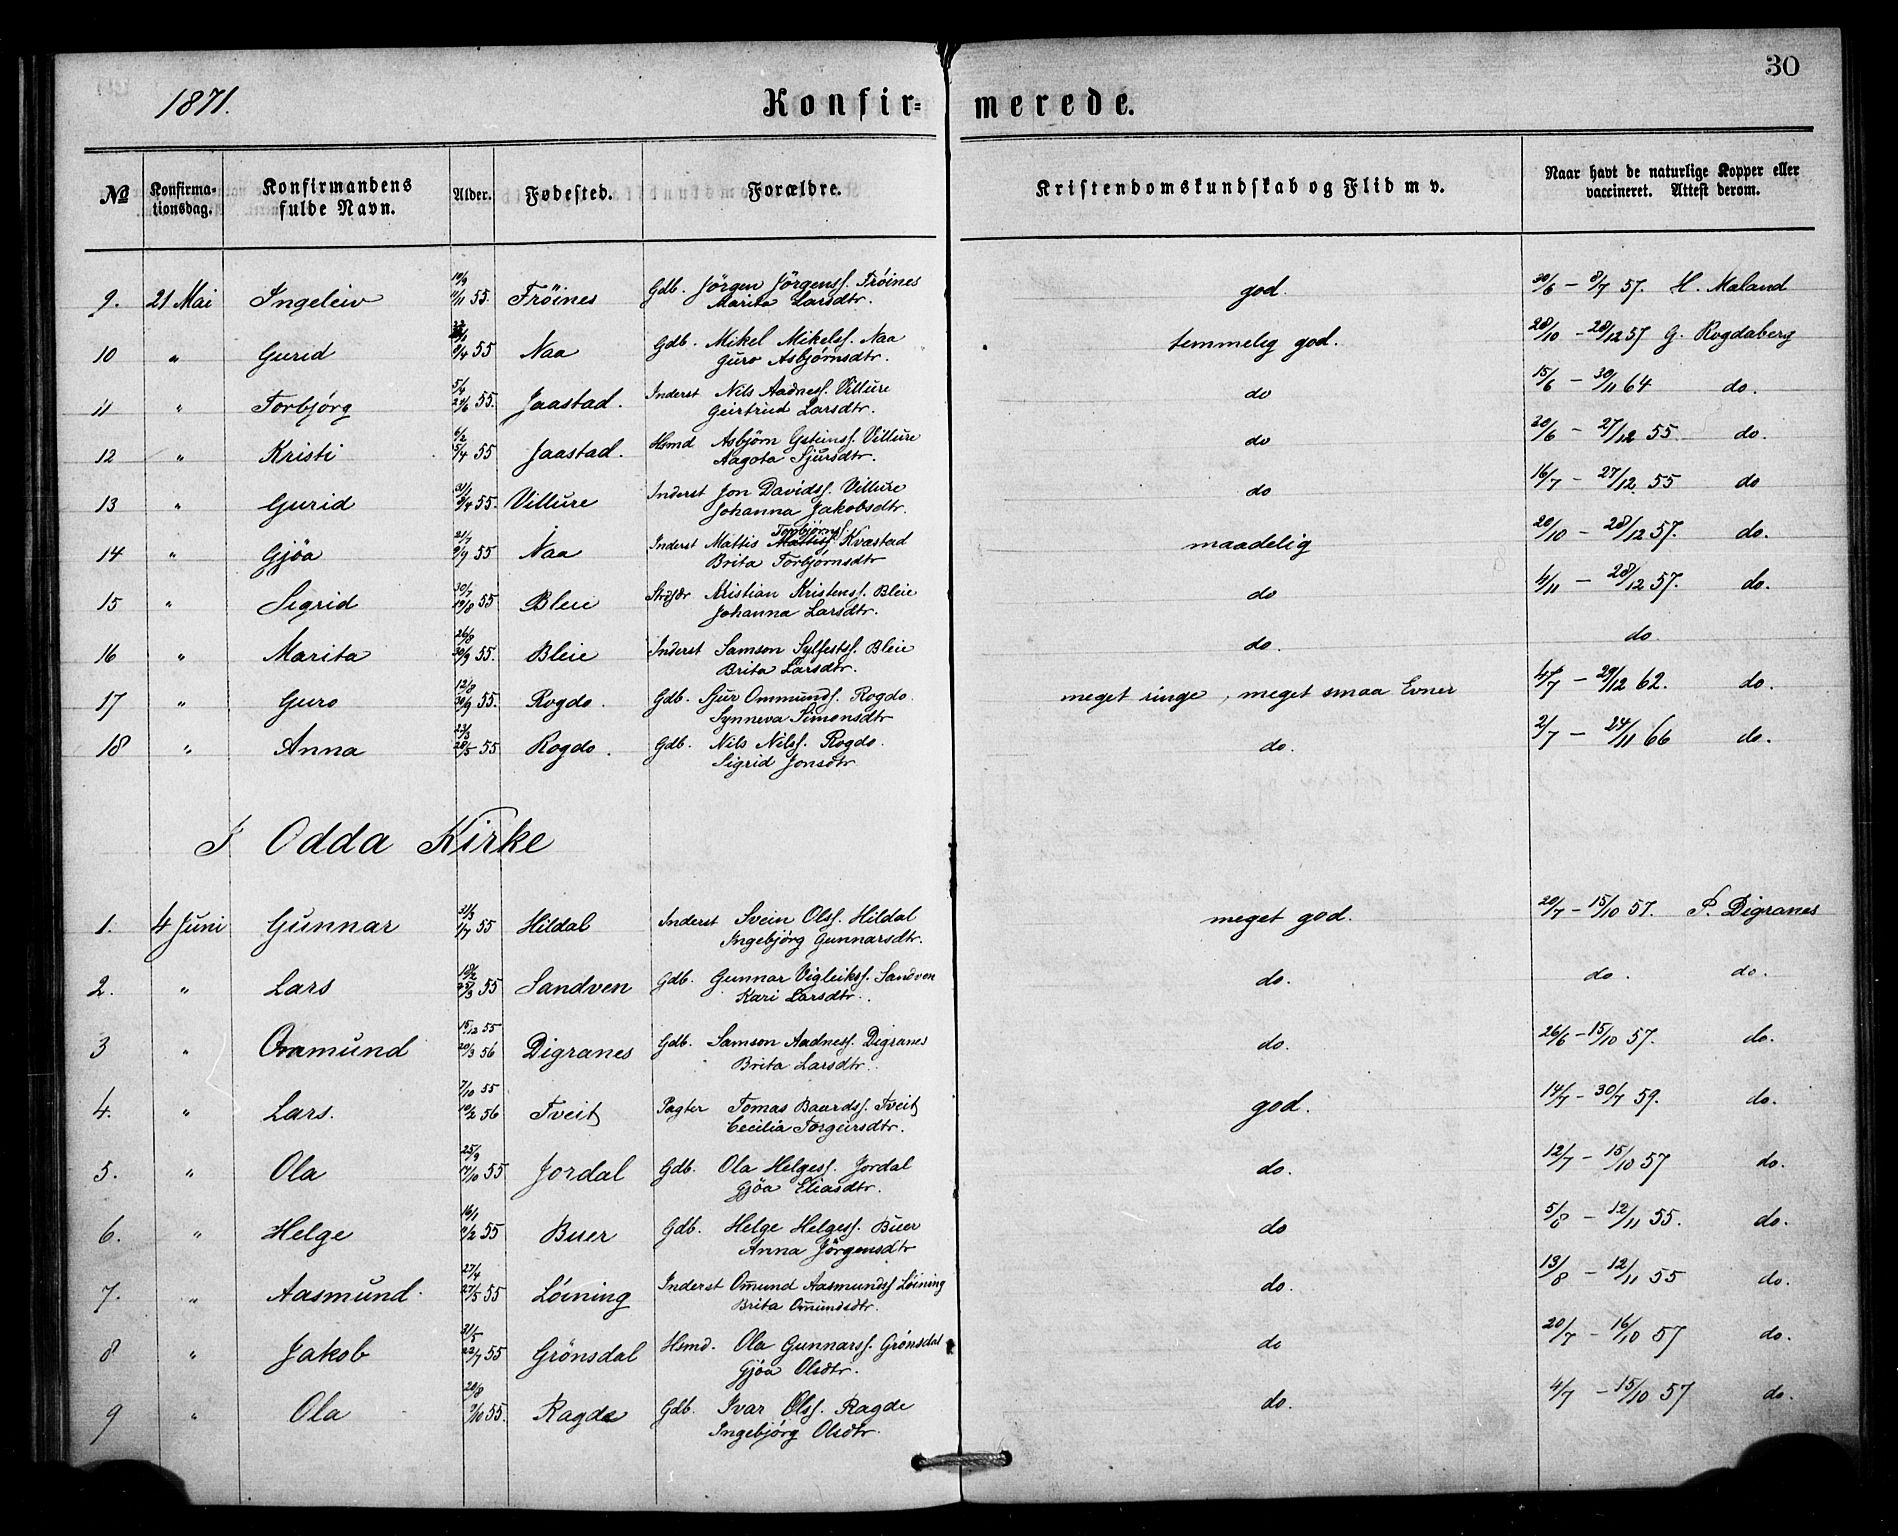 30
1871.
Konfir= merede.
№ Konfirma-tionsdag. Konfirmandens fulde Navn. Alder. Fødested. Forældre. Kristendomskundskab og Flid m v. Naar havt de naturlige Kopper eller vaccineret. Attest derom.
9. 21 Mai Ingeleiv 10/9 11/11 55. Fröines Gdb. Jörgen Jörgenss. Fröines god. 30/6 – 8/7 57. H. Maland
Marita Larsdtr.
10 " Gurid 9/4 55 Naa Gdb. Mikel Mikelss. Naa temmelig god. 28/10 – 28/12 57 G. Rogdaberg
Guro Asbjörnsdtr.
11 " Torbjörg 5/6 24/6 55. Jaastad. Inderst Nils Aadness. Villure do 15/6 – 30/11 64 do.
Geirtrud Larsdtr.
12 " Kristi 6/2 5/4 55 Jaastad. Hsmd Asbjörn Gsteinss. Villure do 30/6 – 27/12 55 do.
Aagota Sjursdtr.
13 " Gurid 31/1 9/4 55. Villure Inderst Jon Davidss. Villure do 16/7 – 27/12. 55 do
Johanna Jakobsdtr.
Torbjörnss.
14 " Gjöa 21/7 9/9 55 Naa Inderst Mattis Mattiss. Kvæstad maadelig 20/10 – 28/12 57. do.
Brita Torbjörnsdtr
15 " Sigrid 30/7 19/8 55 Bleie Kristian Kristenss. Bleie do 4/11 – 28/12 57. do.
Johanna Larsdtr.
16 " Marita 26/8 30/9 55. Bleie Inderst Samson Sylfestss. Bleie do. do.
Brita Larsdtr.
17 " Guro 12/8 30/9 55. Rogdo. Gdb. Sjur Ommunds. Rogdo. meget ringe, meget smaa Evner 4/7 – 29/12 62. do.
Synneva Simonsdtr
18 " Anna 23/3 28/5 55 Rogdo. Gdb. Nils Nilss. Rogdo. do. 2/7 – 24/11 66 do.
Sigrid Jonsdtr
I Odda Kirke
1. 4 Juni Gunnar 31/3 1/7 55 Hildal Inderst Svein Olss. Hildal meget god. 20/7 – 15/10 57. P. Digranes
Ingebjörg Gunnarsdtr.
2. " Lars 18/2 25/3 55 Sandven Gdb. Gunnar Vigleikss. Sandven do. do. do.
Kari Larsdtr.
3 " Ommund 15/12 55 20/3 56 Digranes Gdb. Samson Aadness. Digranes do. 26/6 – 15/10 57. do.
Brita Larsdtr.
4. " Lars. 7/10 55 10/2 56 Tveit Pagter Tomas Baardss. Tveit god. 14/7 – 30/7 59. do.
Cecilia Torgeirsdtr.
5. " Ola 25/9 17/10 55 Jordal Gdb. Ola Helgess. Jordal do. 12/7 – 15/10 57 do.
Gjöa Eliasdtr.
6. " Helge 16/1 11/2 55 Buer Gdb. Helge Helgess. Buer do 5/8 – 12/11 55. do.
Anna Jörgensdtr
7. " Aasmund. 27/4 27/5 55 Löining Inderst Omund Aasmundss. Löining do. 13/8 – 12/11 55 do.
Brita Omundsdtr.
8 " Jakob 31/5 22/7 55 Grönsdal Hsmd. Ola Gunnarss. Grönsdal do 20/7 – 16/10 57 do.
Gjöa Olsdtr.
9 " Ola 20/8 7/10 55. Ragde Gdb. Ivar Olss. Ragde do. 4/7 – 15/10 57 do.
Ingebjörg Olsdtr.